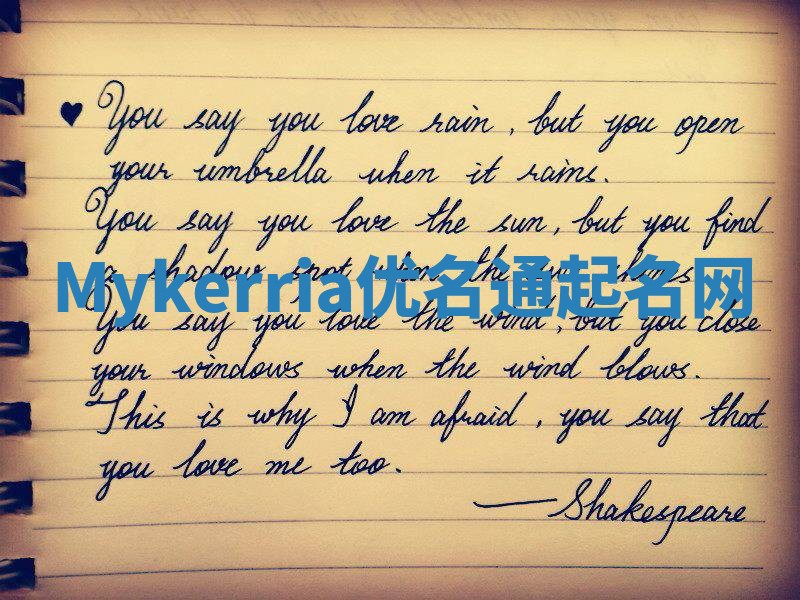 ♥ You say you love rain, but you open
your umbrella when it rains.
You say you love the sun, but you find
a shadow spot when the sun shines
Mykerria优名通起名网
You say you love the wind, but you close
your windows when the wind blows.
This is why I am afraid, you say that
you love me too.
— Shakespeare